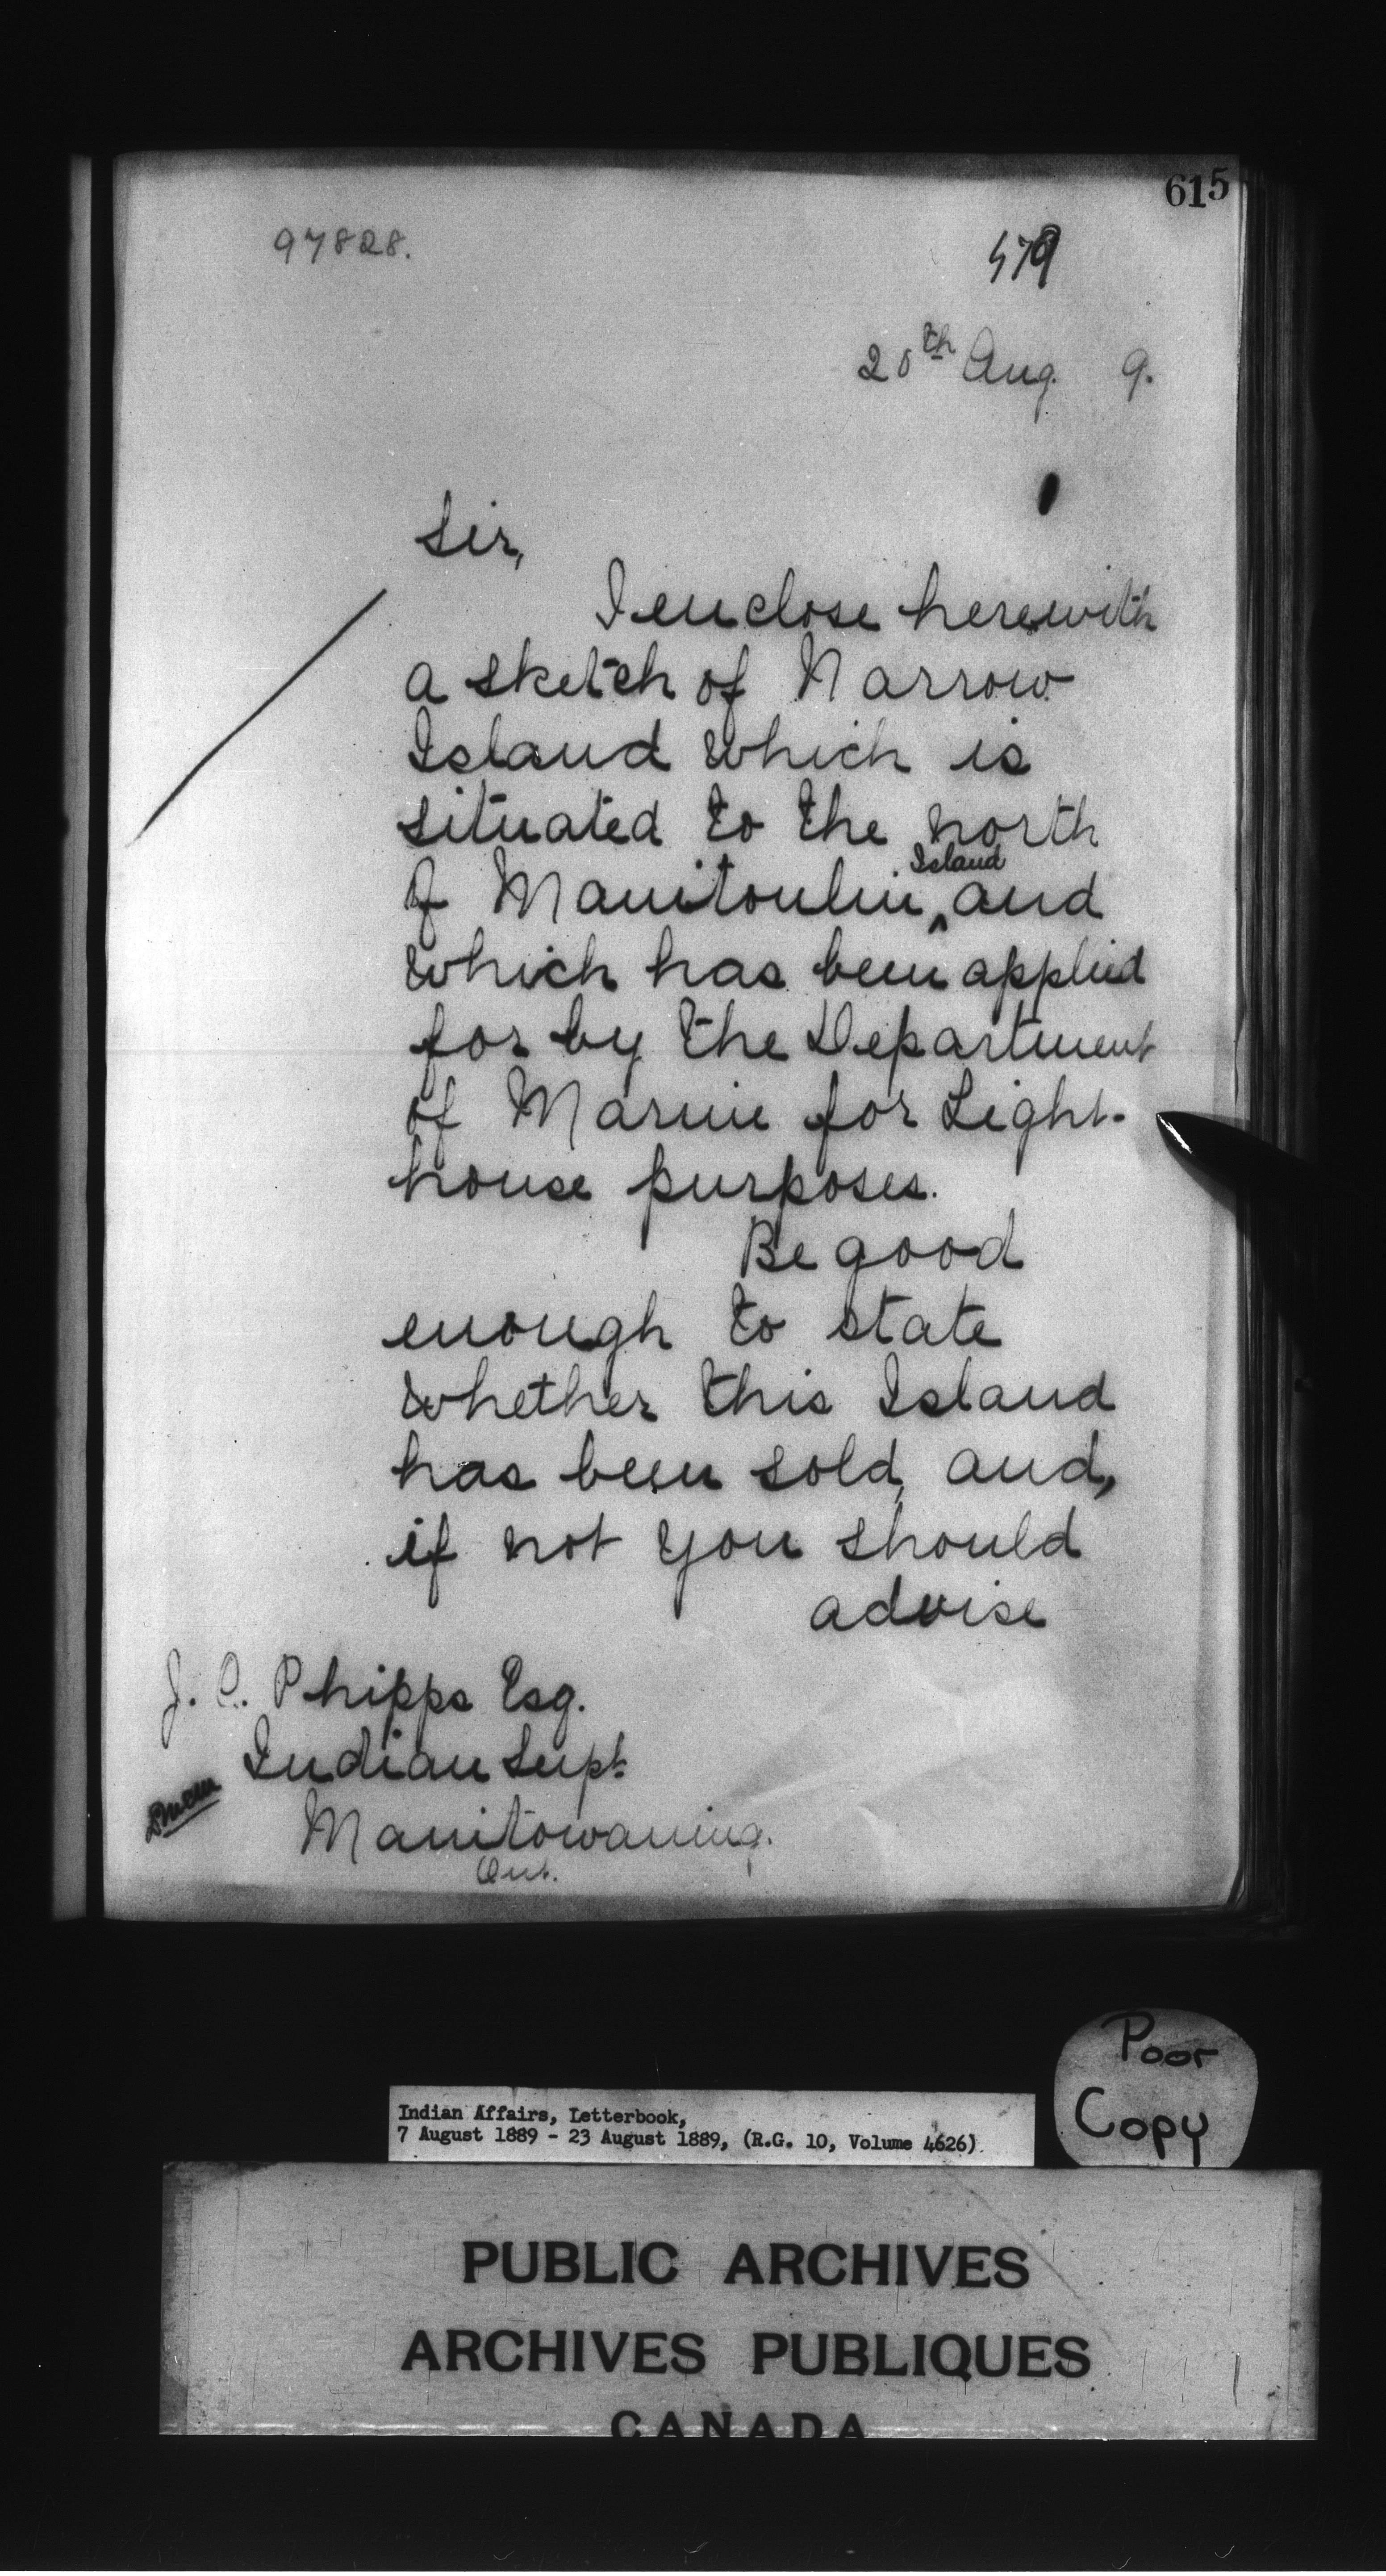 615
97828.
479
20th Aug. 9.
Sir,
I enclose herewith
a sketch of Narrow
Island which is
situated to the north
of Manitoulin Island and
which has been applied
for by the Department
of Marine for Light-
house purposes.
Be good
enough to state
whether this Island
has been sold, and,
if not you should
advise
J. C. Phipps Esq.
Indian Supt.
Manitowaning.
Ont.
Poor
Copy
Indian Affairs, Letterbook,
7 August 1889 - 23 August 1889, (R.G. 10, Volume 4626)
PUBLIC ARCHIVES
ARCHIVES PUBLIQUES
CANADA